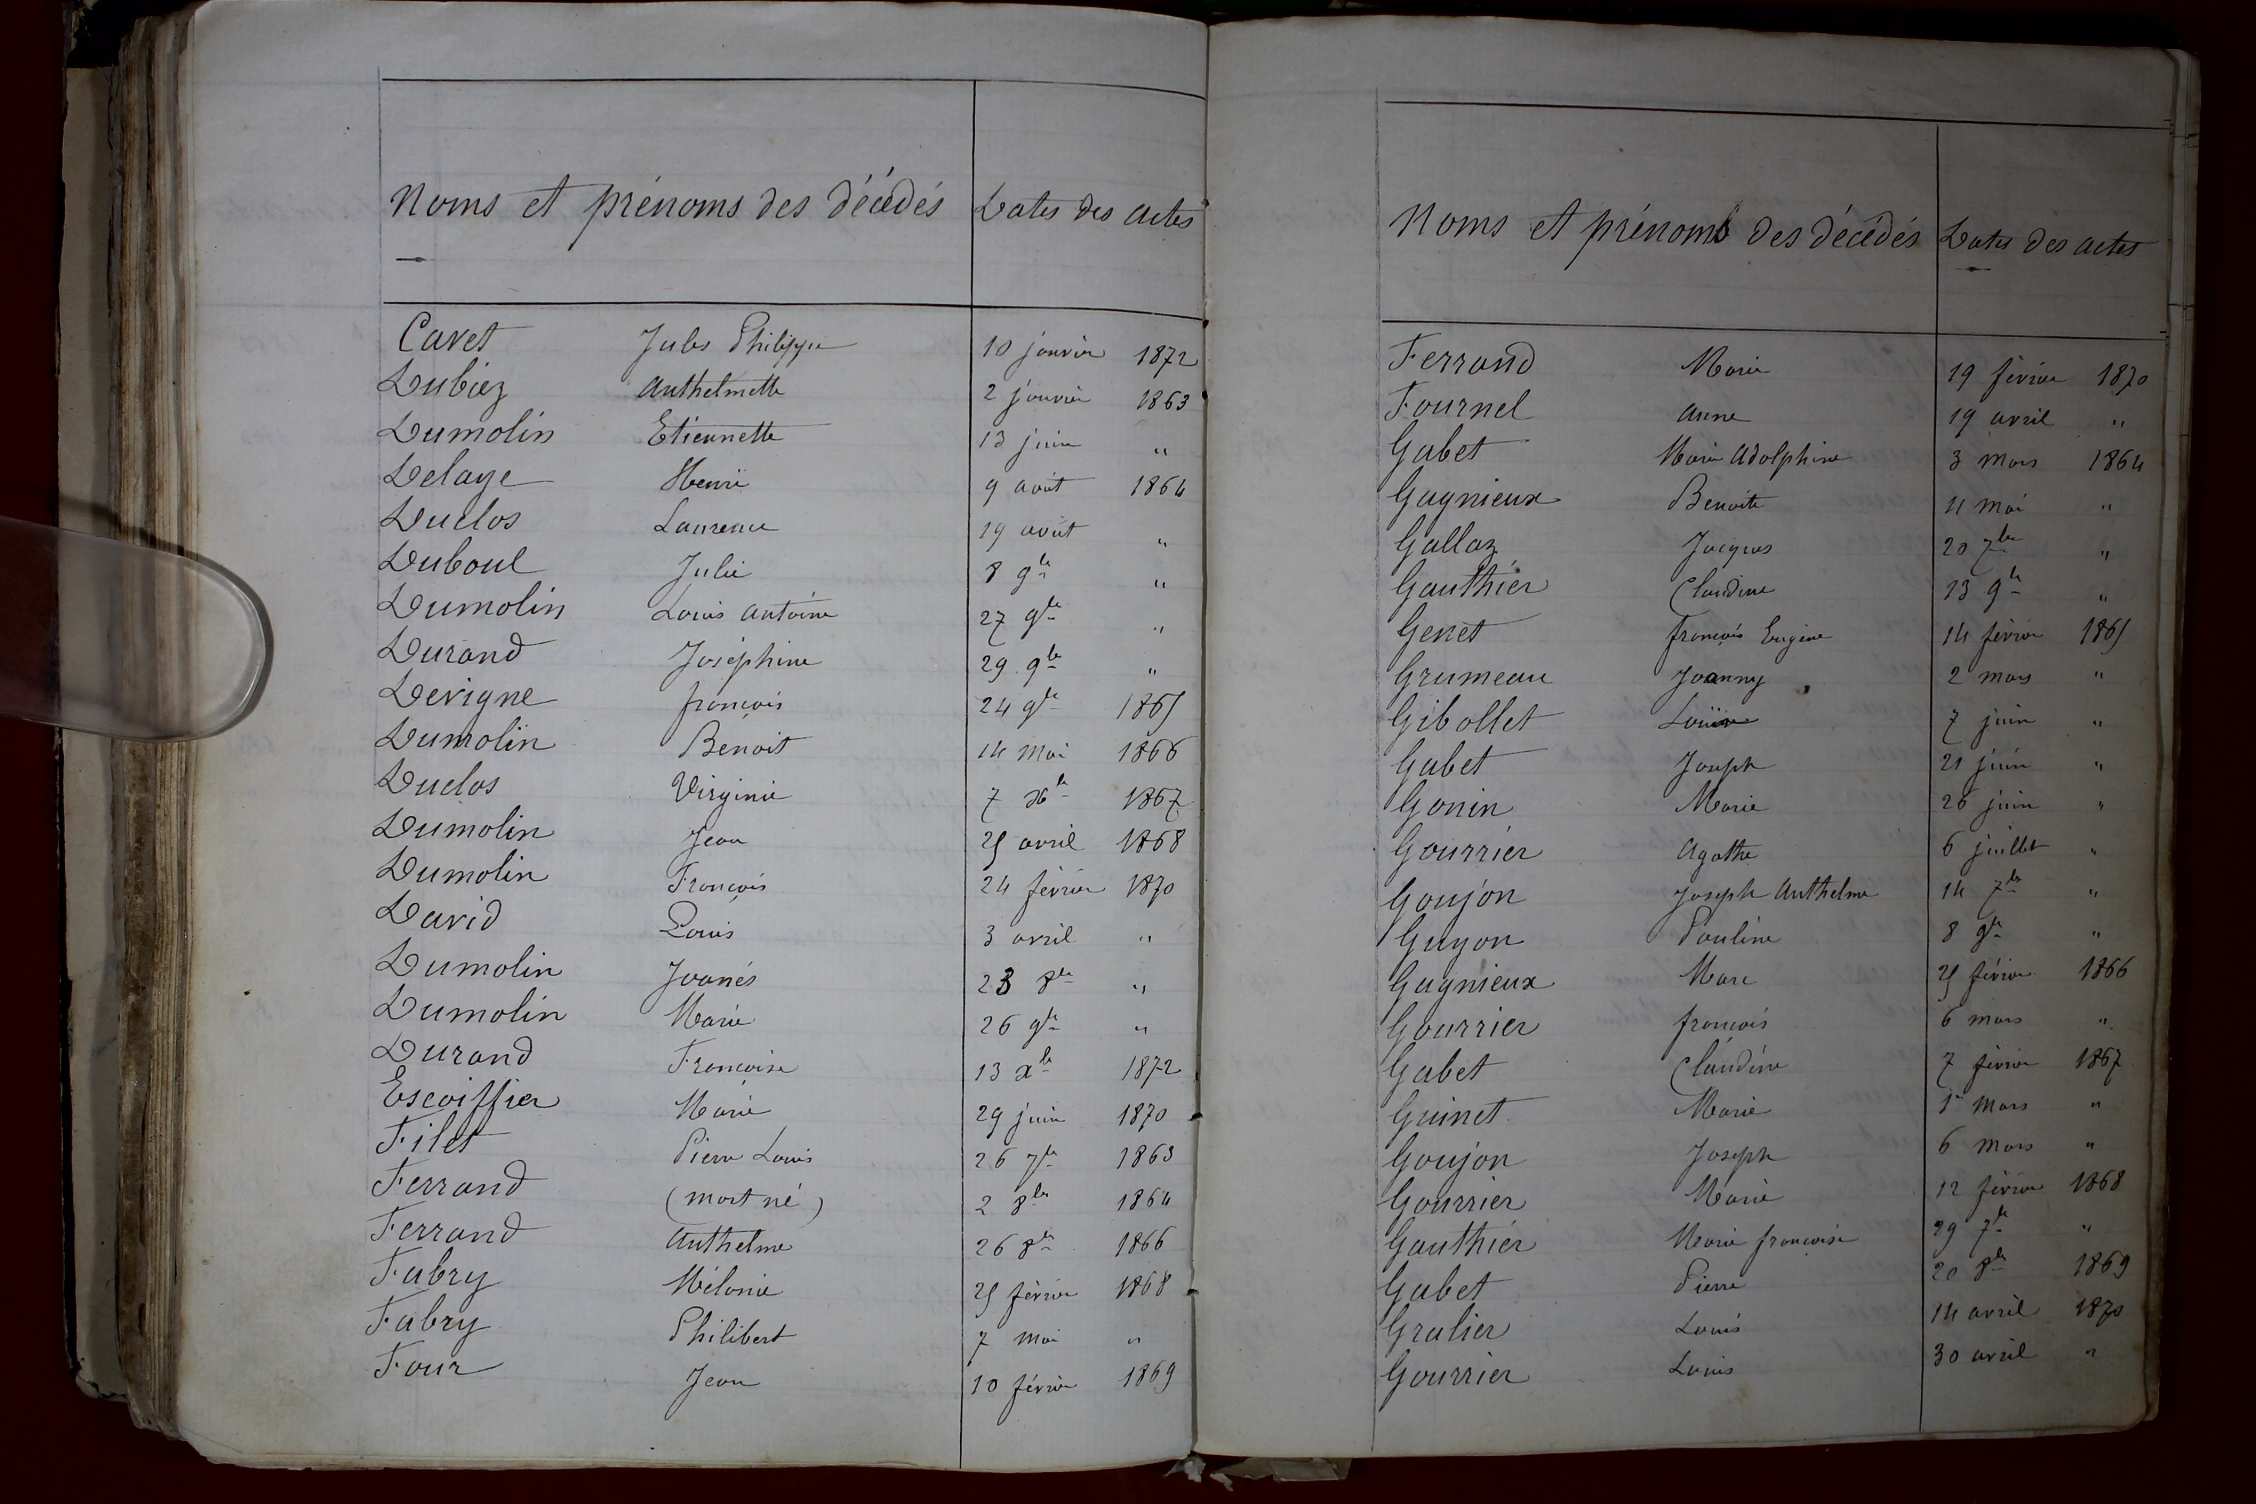 Noms et prénoms des décédés Dates des actes
Cavet Jules Philippe 10 janvier 1872
Dubiez Anthelmette 2 janvier 1863
Dumolin Etiennette 13 juin "
Delaye Henri 9 août 1864
Duclos Laurence 19 août "
Duboul Julie 8 9bre "
Dumolin Louis Antoine 27 9bre "
Durand Joséphine 29 9bre "
Devigne françois 24 9bre 1865
Dumolin Benoit 14 mai 1866
Duclos Virginie 7 Xbre 1867
Dumolin Jean 25 avril 1868
Dumolin François 24 février 1870
David Louis 3 avril "
Dumolin Joanès 23 8bre "
Dumolin Marie 26 9bre "
Durand Françoise 13 Xbre 1872
Escoiffier Marie 29 juin 1870
Filet Pierre Louis 26 7bre 1863
Ferrand (mort né) 2 8bre 1864
Ferrand Anthelme 26 8bre 1866
Fabry Mélanie 25 février 1868
Fabry Philibert 7 mai "
Four Jean 10 février 1869
Noms et prénoms des décédés Dates des actes
Ferrand Marie 19 février 1870
Fournel Anne 19 avril "
Gabet Marie Adolphine 3 mars 1864
Gagnieux Benoite 11 mai "
Gallaz Jacques 20 7bre "
Gauthier Claudine 13 9bre "
Genet françois Eugène 14 février 1865
Grumeau Joanny 2 mars "
Gibollet 7 juin "
Gabet Joseph 21 juin "
Gonin Marie 26 juin "
Gourrier Agathe 6 juillet "
Goujon Joseph Anthelme 14 7bre "
Guyon Pauline 8 9bre "
Gagnieux Marc 25 février 1866
Gourrier françois 6 mars "
Gabet Claudine 7 février 1867
Guinet Marie 1er mars "
Goujon Joseph 6 mars "
Gourrier Marie 12 février 1868
Gauthier Marie françoise 29 7bre "
Gabet Pierre 20 8bre 1869
Gralier Louis 14 avril 1870
Gourrier Louis 30 avril "